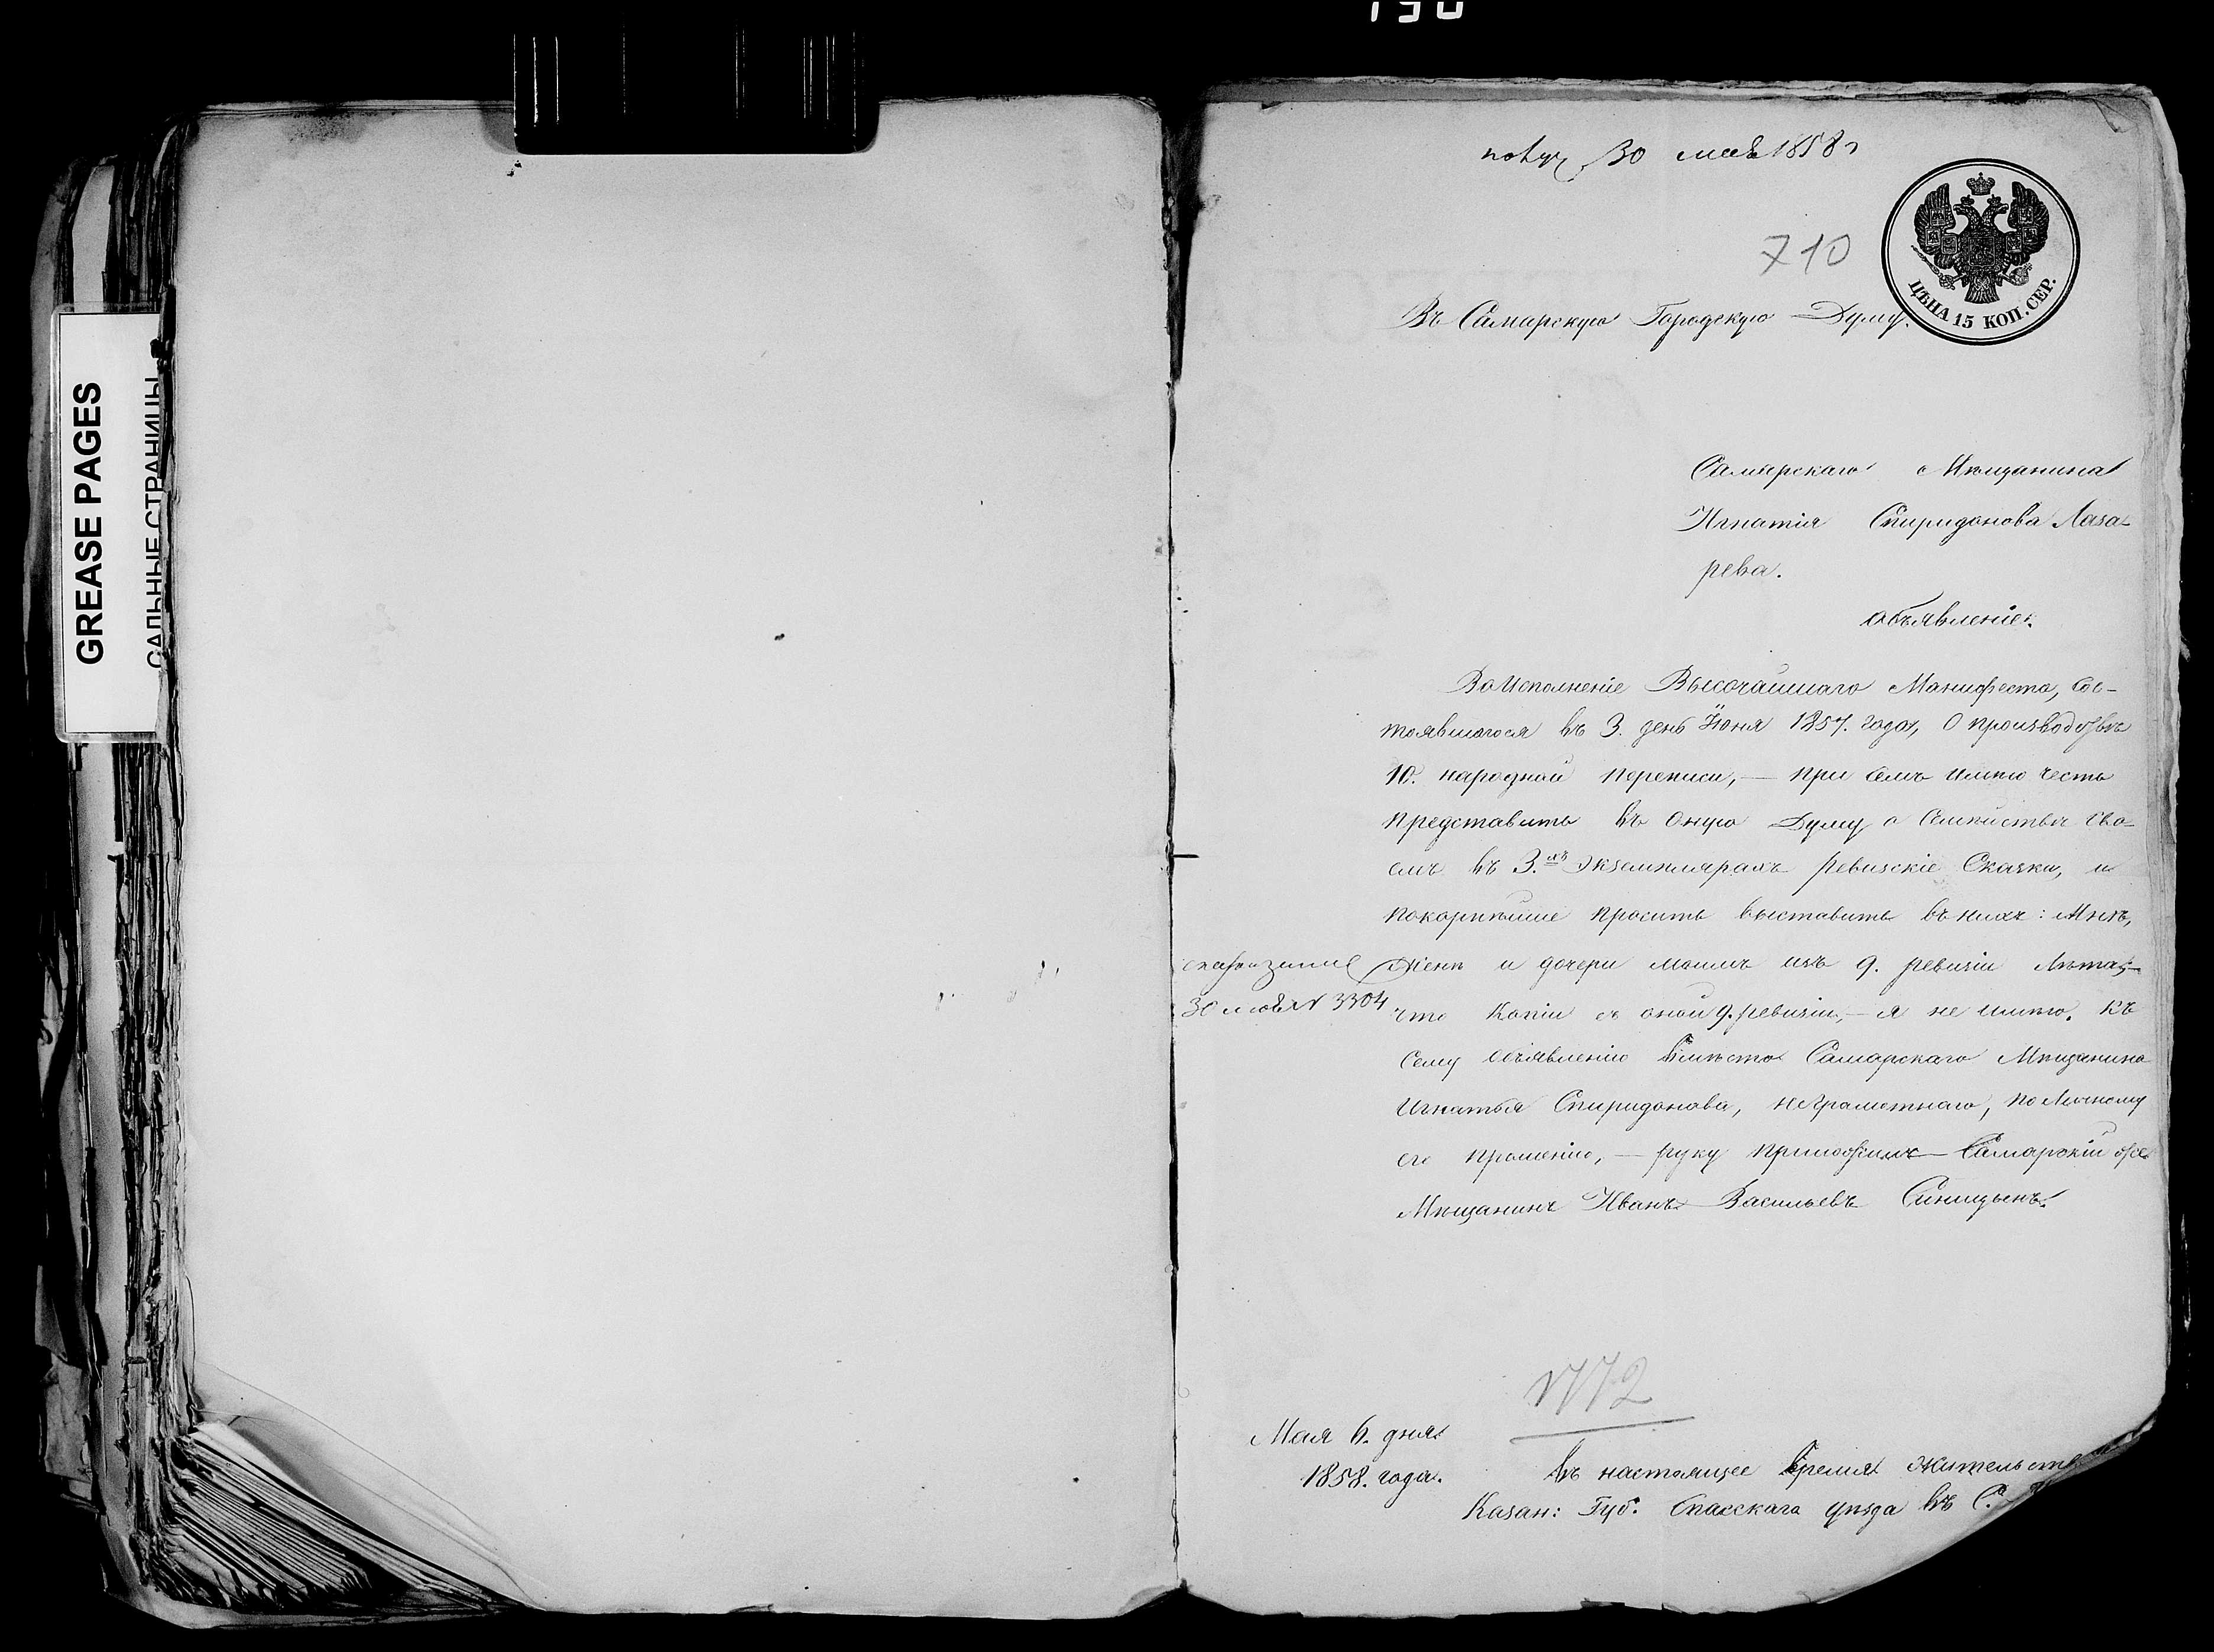 GREASE PAGES
САЛЬНЫЕ СТРАНИЦЫ
получ 30 мая 1858 г
710
ЦѢНА 15 КОП. СЕР.
Въ Самарскую Городскую Думу.
Самарскаго Мѣщанина
Игнатія Спиридонова Лаза-
рева.
объявленіе.
Во Исполненіе Высочайшаго Манифеста, Сос-
тоявшагося въ 3. день Іюня 1857. года, О производствѣ
10. народной переписи, — при семъ имѣю честь
представить въ Оную Думу о Семѣйствѣ сво-
емъ въ 3.хъ Экземплярахъ Ревизскіе Сказки, и
покорнѣйше просить выставить въ нихъ: Мнѣ,
Женѣ и дочери моимъ изъ 9. ревизіи Лѣта,—
30 мая № 3304
что Копіи съ оной 9. ревизіи, — я не имѣю. Къ
Сему объявленію вмѣсто Самарскаго Мѣщанина
Игнатья Спиридонова, неграмотнаго, по Личному
его прошенію, — руку приложилъ — Самарскій же
Мѣщанинъ Иванъ Васильевъ Синицынъ.
1772
Мая 6. дня
1858. года.
въ настоящее время жительств
Казан: Губ. Спасскаго уѣзда въ С.